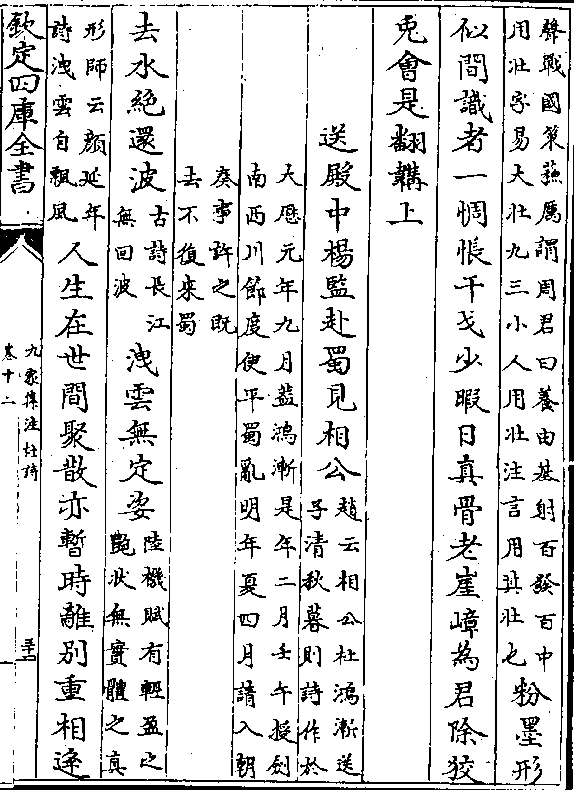 聲戰國策蘇厲謂周君曰養由基射百發百中
用壯字易大壯九三小人用壯注言用其壯也
粉墨形
似間識者一惆悵干戈少暇日真骨老崖嶂為君除狡
兎會是翻鞲上
送殿中楊監赴蜀見相公
趙云相公杜鴻漸送
子清秋暮則詩作於
大厯元年九月葢鴻漸是年二月壬午授劍
南西川節度使平蜀亂明年夏四月請入朝
奏事許之既
去不復來蜀
去水絶還波
古詩長江
無回波
洩雲無定姿
陸機賦有輕盈之
艶狀無實體之真
形師云顔延年
詩洩雲自飄風
人生在世間聚散亦暫時離別重相逢
欽定四庫全書
九家集注杜詩
卷十二